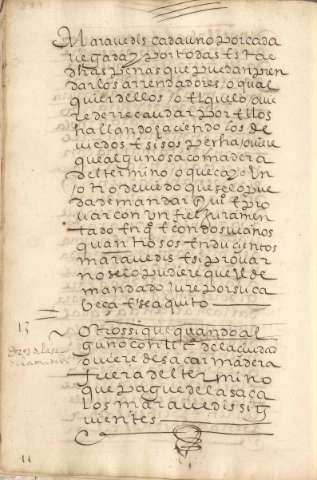 Maravedis cada uno por cada
vegada y por todas estas
dhas penas que puedan pren
dar los arrendadores o qual
quier dellos o el que lo ouie
re de recaudar por ellos
hallando faciendo los de
vedos e si sospecha ouiere
que alguno saco madera
del termino o que caço en
o tro devedo que se lo pue
da demandar
var con un fiel juramen
tado en que e con dos vezinos
quantiosos en ducientos
maravedis e si provar
no se lo pudiere que el de
mandado jure por su ca
beca e sea quito
13
Otrossi que quando al
guno con lica de la ciudad
ouiere de sacar madera
fuera del termino
que pague de la saca
los maravedis sig
uientes
11